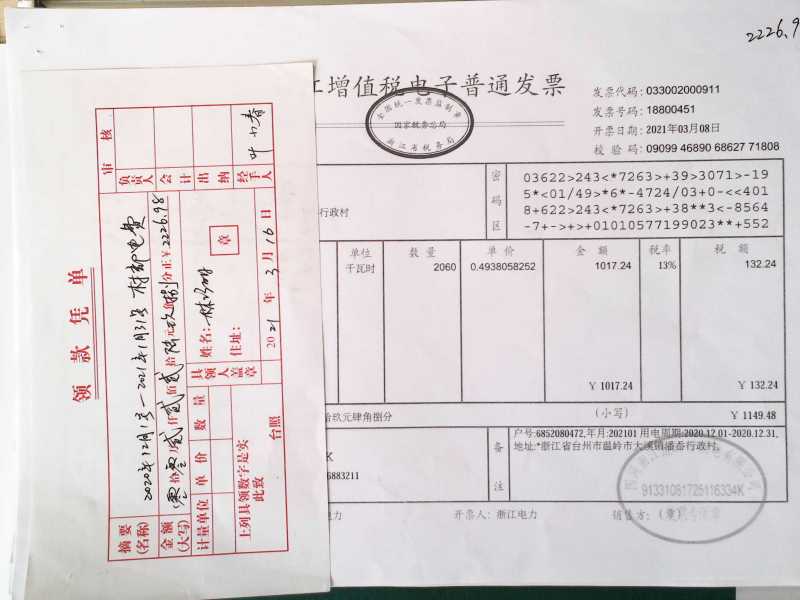 2226.9
增值税电子普通发票
全国统一发票监制章
国家税务总局
浙江省税务局
发票代码: 033002000911
发票号码: 18800451
开票日期: 2021年03月08日
校 验 码: 09099 46890 68627 71808
行政村
密码区
03622>243<*7263>+39>3071>-19
5*<01/49>*6*-4724/03+0-<<401
8+622>243<*7263>+38**3<-8564
-7+->+>+01010577199023**+552
单位 数 量 单 价 金 额 税率 税 额
千瓦时 2060 0.4938058252 1017.24 13% 132.24
¥ 1017.24 ¥ 132.24
拾玖元肆角捌分 (小写) ¥ 1149.48
备注
户号:6852080472,年月:202101 用电周期:2020.12.01-2020.12.31,
地址:*浙江省台州市温岭市大溪镇潘岙行政村,
K
6883211
91331081725116334K
电力 开票人: 浙江电力 销售方: (章)
领款凭单
摘要(名称) 2020年12月1号—2021年1月31号 村部电费
金额(大写) 零拾零万贰仟贰佰贰拾陆元玖角捌分正¥2226.98
计量单位 单价 数量
具领人盖章 姓名: 章
住址:
上列具领数字是实
此致
台照
2021年3月16日
审核
负责人 会计 出纳 经手人